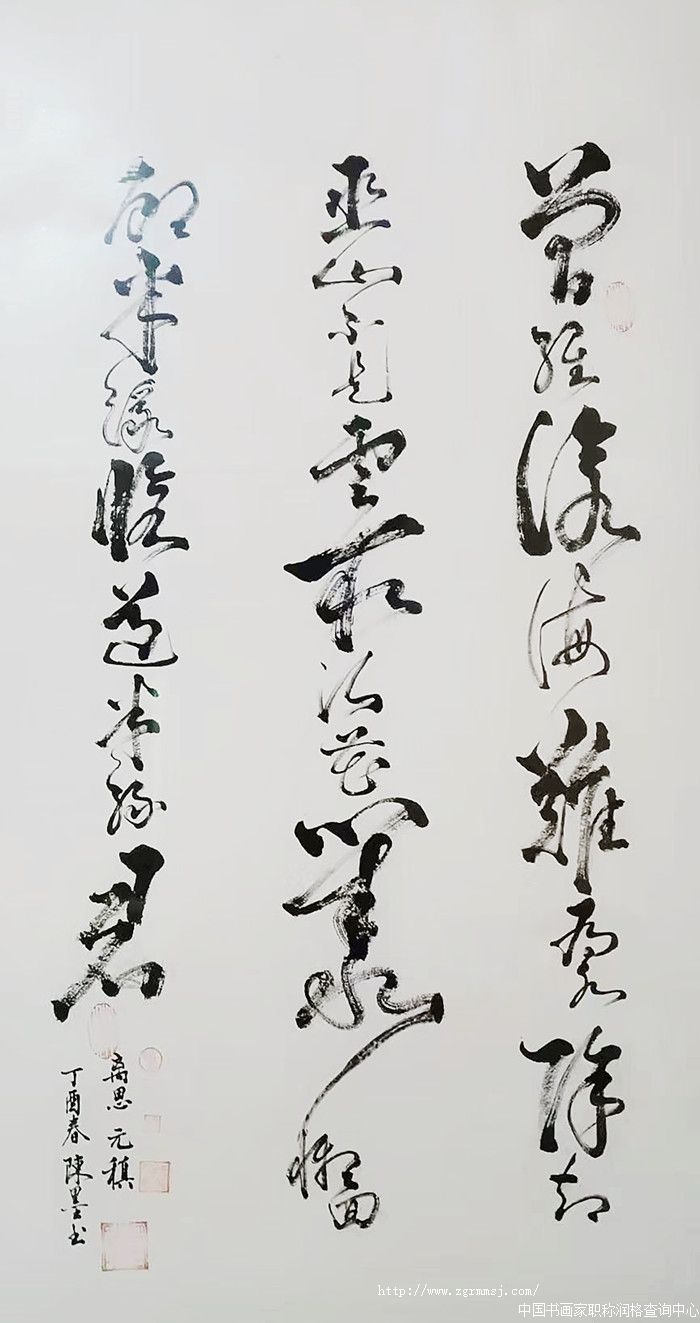 曾經滄海難為水除却
巫山不是雲取次花叢懶回
顧半緣修道半緣君
离思 元稹
丁酉春 陳墨书
http://www.zgrmmsj.com/
中国书画家职称润格查询中心